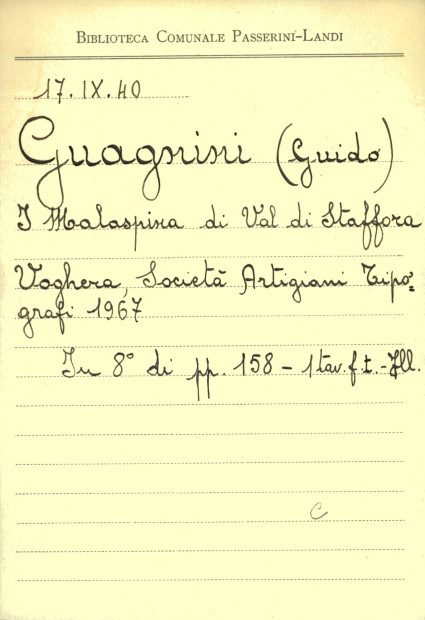 Biblioteca Comunale Passerini-Landi
17.IX.40
Guagnini (Guido)
I Malaspina di Val di Staffora
Voghera, Società Artigiani Tipo=
grafi 1967
In 8° di pp. 158 - 1 tav. f.t. - Ill.
C